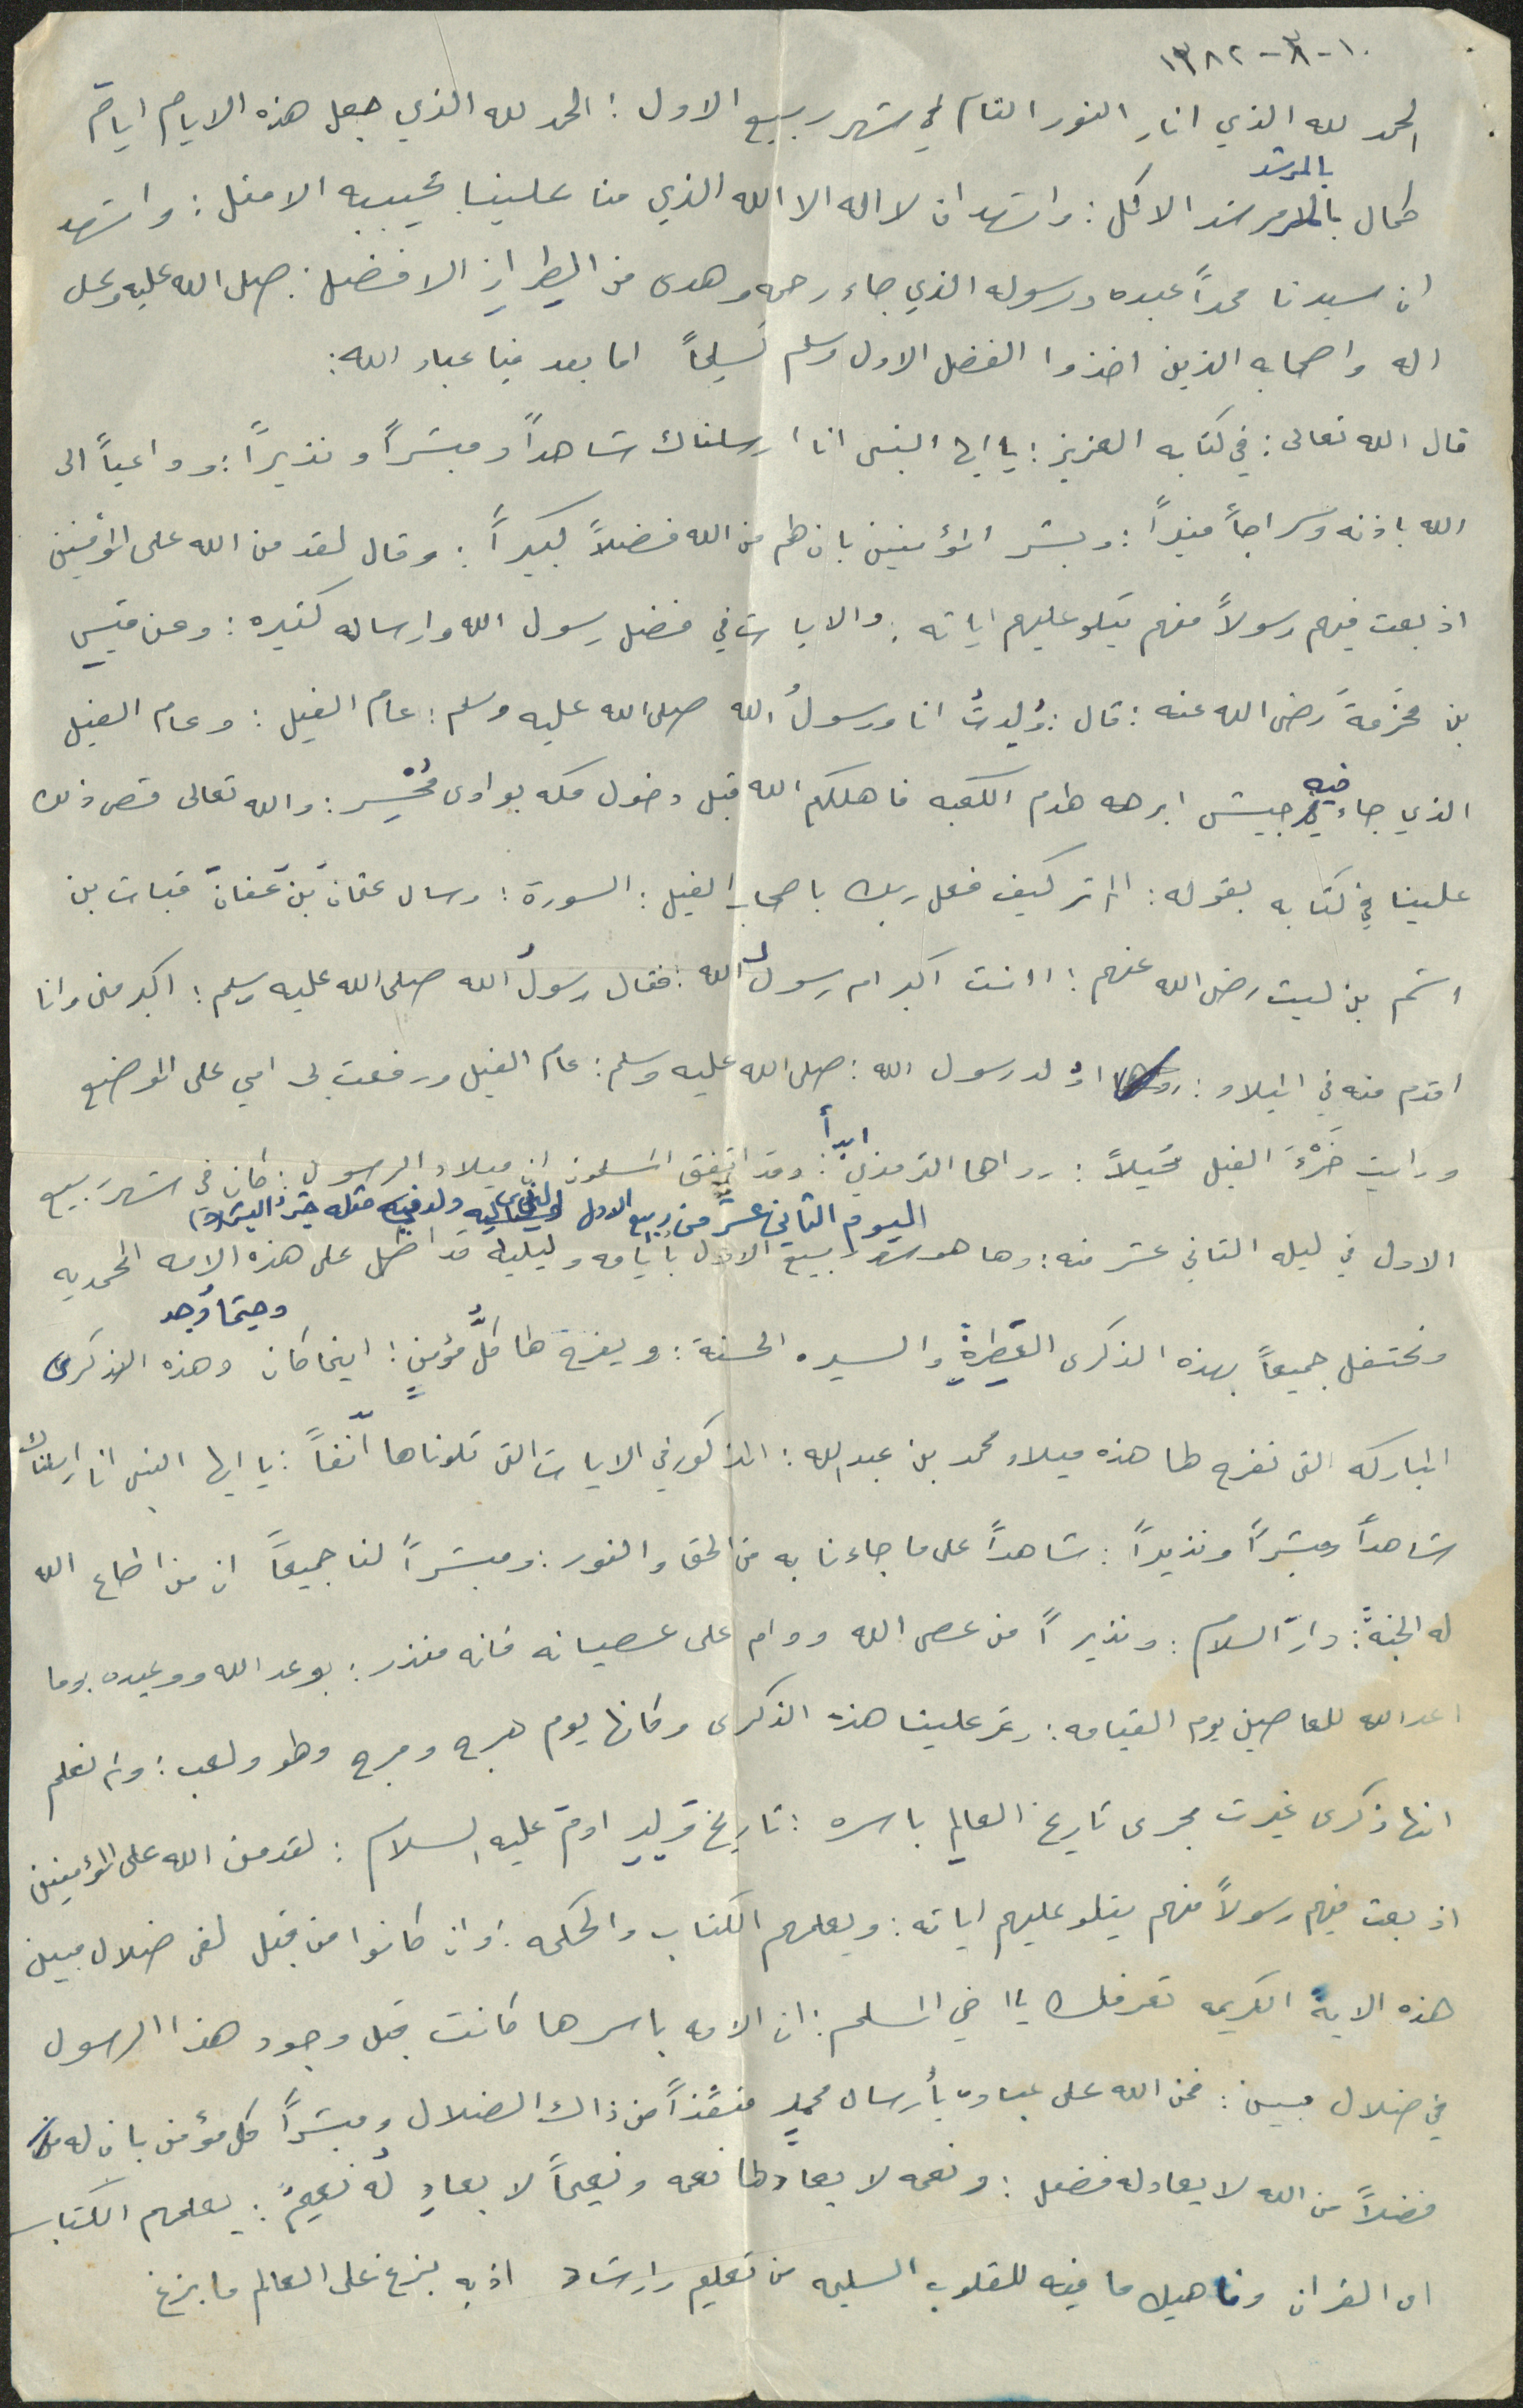 ١٠-٣-١٣٨٢
الحمد لله الذي انار النور التام في شهر ربيع الاول : الحمد لله الذي جعل هذه الايام ايام
بالمرشد
كمال الاكمل : واشهد ان لا اله الا الله الذي منا علينا بحبيبه الامثل : واشهد
ان سيدنا محمداً عبده ورسوله الذي جاء رحمه وهدى من الطراز الافضل : صلى الله عليه وعلى
اله واصحابه الذين اخذوا الفضل الاول وسلم تسليماً اما بعد فيا عباد الله :
قال الله تعالى : في كتابه العزيز : يا ايها النبى انا ارسلناك شاهداً ومبشراً ونذيراً : وداعياً الى
الله باذنه وسراجاً منيراً : وبشر المؤمنين بان لهم من الله فضلاً كبيراً : وقال لقد من الله على المؤمنين
اذ بعث فيهم رسولاً منهم يتلو عليهم اياته : والايات في فضل رسول الله وارساله كثيره : وعن قيس
بن مخرمةَ رضى الله عنه : قال : وُلِدتُ انا ورسولُ الله صلى الله عليه وسلم : عام الفيل : وعام الفيل
الذي جاء فيه جيش ابرهه لهدم الكعبه فاهلكهم الله قبل دخول مكه بوادى مُحْسِر : والله تعالى قص ذلك
علينا في كتابه بقوله : الم تر كيف فعل ربك باصحاب الفيل : السورة : وسال عثمان بن عفان قبات بن
اشم بن ليث رضى الله عنهم : اانت اكبر ام رسول الله : فقال رسولُ الله صلى الله عليه وسلم : اكبر منى وانا
اقدم منه في الميلاد : وُلد رسول الله : صلى الله عليه وسلم : عام الفيل ورفعت بى امي على الموضع
ورايت خَرْءَ الفيل محيلاً : رواها الترمذي ايداً : وقد اتفق المسلمون ان ميلاد الرسول : كان في شهر ربيع
اليوم الثاني عشر من ربيع الاول ولد فيه
الاول في ليله الثاني عشر منه : وها هو شهر ربيع الاول بايامه ولياليه قد اطل على هذه الامه المحمديه
ونحتفل جميعاً بهذه الذكرى العَطِرةِ والسيره الحسنة : ويفرح لها كلُّ مؤمنٍ : اينما كان وحيثما وُجد وهذه الذكرى
المباركه التى نفرح لها هذه ميلاد محمد بن عبد الله : المذكور في الايات التى تلوناها آنفاً : يا ايها النبى انا ارسلناك
شاهداً ومبشراً ونذيراً : شاهداً على ما جاءنا به من الحق والنور : ومبشراً لنا جميعاً ان من اطاع الله
له الجنةَ : دار السلام : ونذيراً من عصى الله ودام على عصيانه فانه منذر : بوعد الله ووعيده : وما
اعد الله للعاصين يوم القيامه : وتمر علينا هذه الذكرى وكانها يوم هرج ومرج ولهو ولعب : ولم نعلم
انها ذكرى غيرت مجرى تاريخ العالم باسره : تاريخ اولادِ ادم عليه السلام : لقد من الله على المؤمنين
اذ بعث فيهم رسولاً منهم يتلو عليهم اياته : ويعلمهم الكتاب والحكمه : وان كانوا من قبل لفى ضلال مبين
هذه الاية الكريمه تعرفك يا اخي المسلم : ان الامه باسرها كانت قبل وجود هذا الرسول
في ضلال مبين : فمن الله على عباده بأرسال محمدٍ منقذاً من ذاك الضلال ومبشراً كل مؤمن بان له
فضلاً من الله لا يعادله فضل : ونعمه لا يعادلها نعمه ونعيماً لا يعادلُه نعيمٌ : يعلمهم الكتاب
اى القران وناهيك ما فيه للقلوب السليمه من تعليم وارشاد اذ به بزغ على العالم ما بزغ